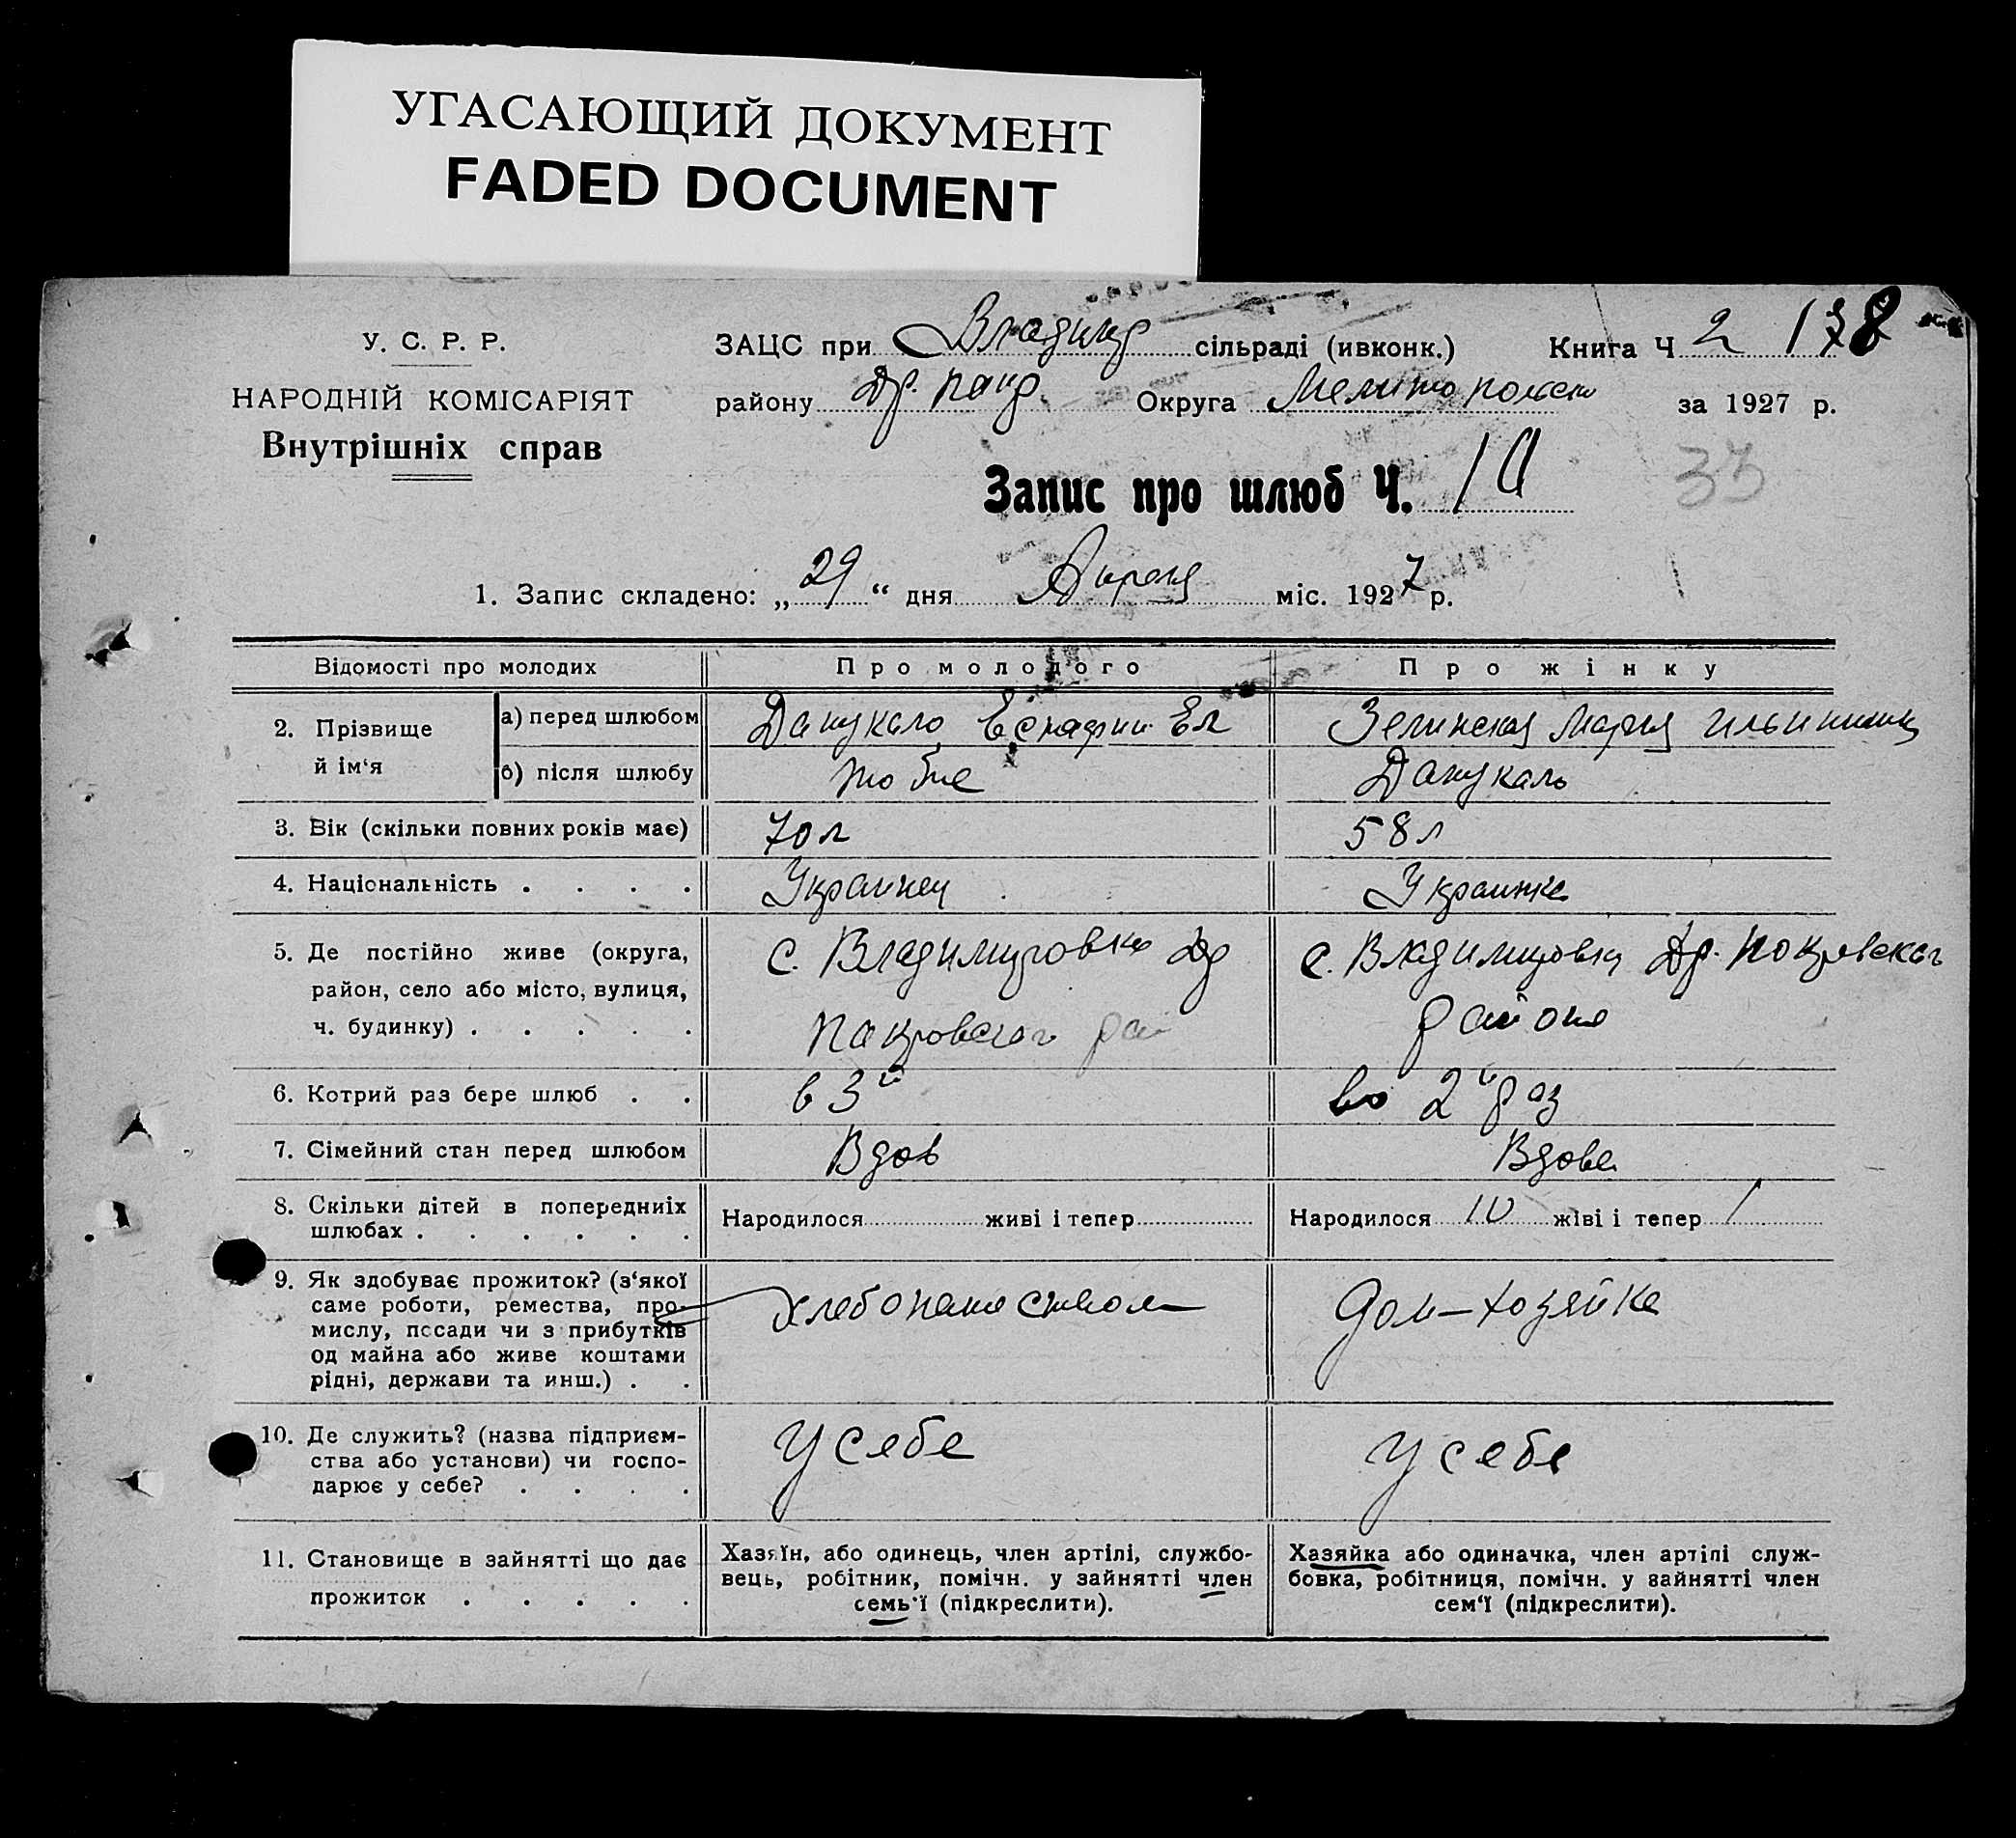 УГАСАЮЩИЙ ДОКУМЕНТ
FADED DOCUMENT
У. С. Р. Р.
НАРОДНІЙ КОМІСАРІЯТ
Внутрішніх справ
ЗАЦС при Владимир сільраді (ивконк.) Книга Ч 2
району Др. Покр. Округа Мелитопольск за 1927 р.
Запис про шлюб Ч. 10
33
1. Запис складено: „29“ дня Апреля міс. 1927 р.
Відомості про молодих Про молодого Про жінку
2. Прізвище й ім‘я
а) перед шлюбом Данукало Ел Зелинская Мария Ильинишна
б) після шлюбу то же Данукало
3. Вік (скільки повних років має) 70 л 58 л
4. Національність . . . . Украинец Украинка
5. Де постійно живе (округа, с. Владимировка Др с. Владимировка Др. Покровского
район, село або місто, вулиця,
ч. будинку) . . . . . Покровского рай района
6. Котрий раз бере шлюб . . в 3й во 2й раз
7. Сімейний стан перед шлюбом Вдов Вдова
8. Скільки дітей в попередніх Народилося живі і тепер Народилося 10 жіві і тепер 1
шлюбах . . . . . .
9. Як здобуває прожиток? (з‘якої
саме роботи, ремества, про- хлебопашеством дом-хозяйка
мислу, посади чи з прибутків
од майна або живе коштами
рідні, держави та инш.) . .
10. Де служить? (назва підприєм-
ства або установи) чи госпо- У себе У себе
дарює у себе? . . . .
11. Становище в зайнятті що дає
прожиток . . . . .
Хазяїн, або одинець, член артілі, службо-
вець, робітник, помічн. у зайнятті член
семь‘ї (підкреслити).
Хазяйка або одиначка, член артілі служ-
бовка, робітниця, помічн. у зайнятті член
сем‘ї (підкреслити).